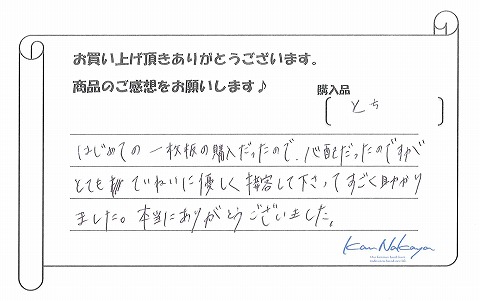 お買い上げ頂きありがとうございます。
商品のご感想をお願いします♪
購入品
とち
はじめての一枚板の購入だったので、心配だったのですが
とても ていねいに優しく接客して下さってすごく助かり
ました。本当にありがとうございました。
Kan Nakaya